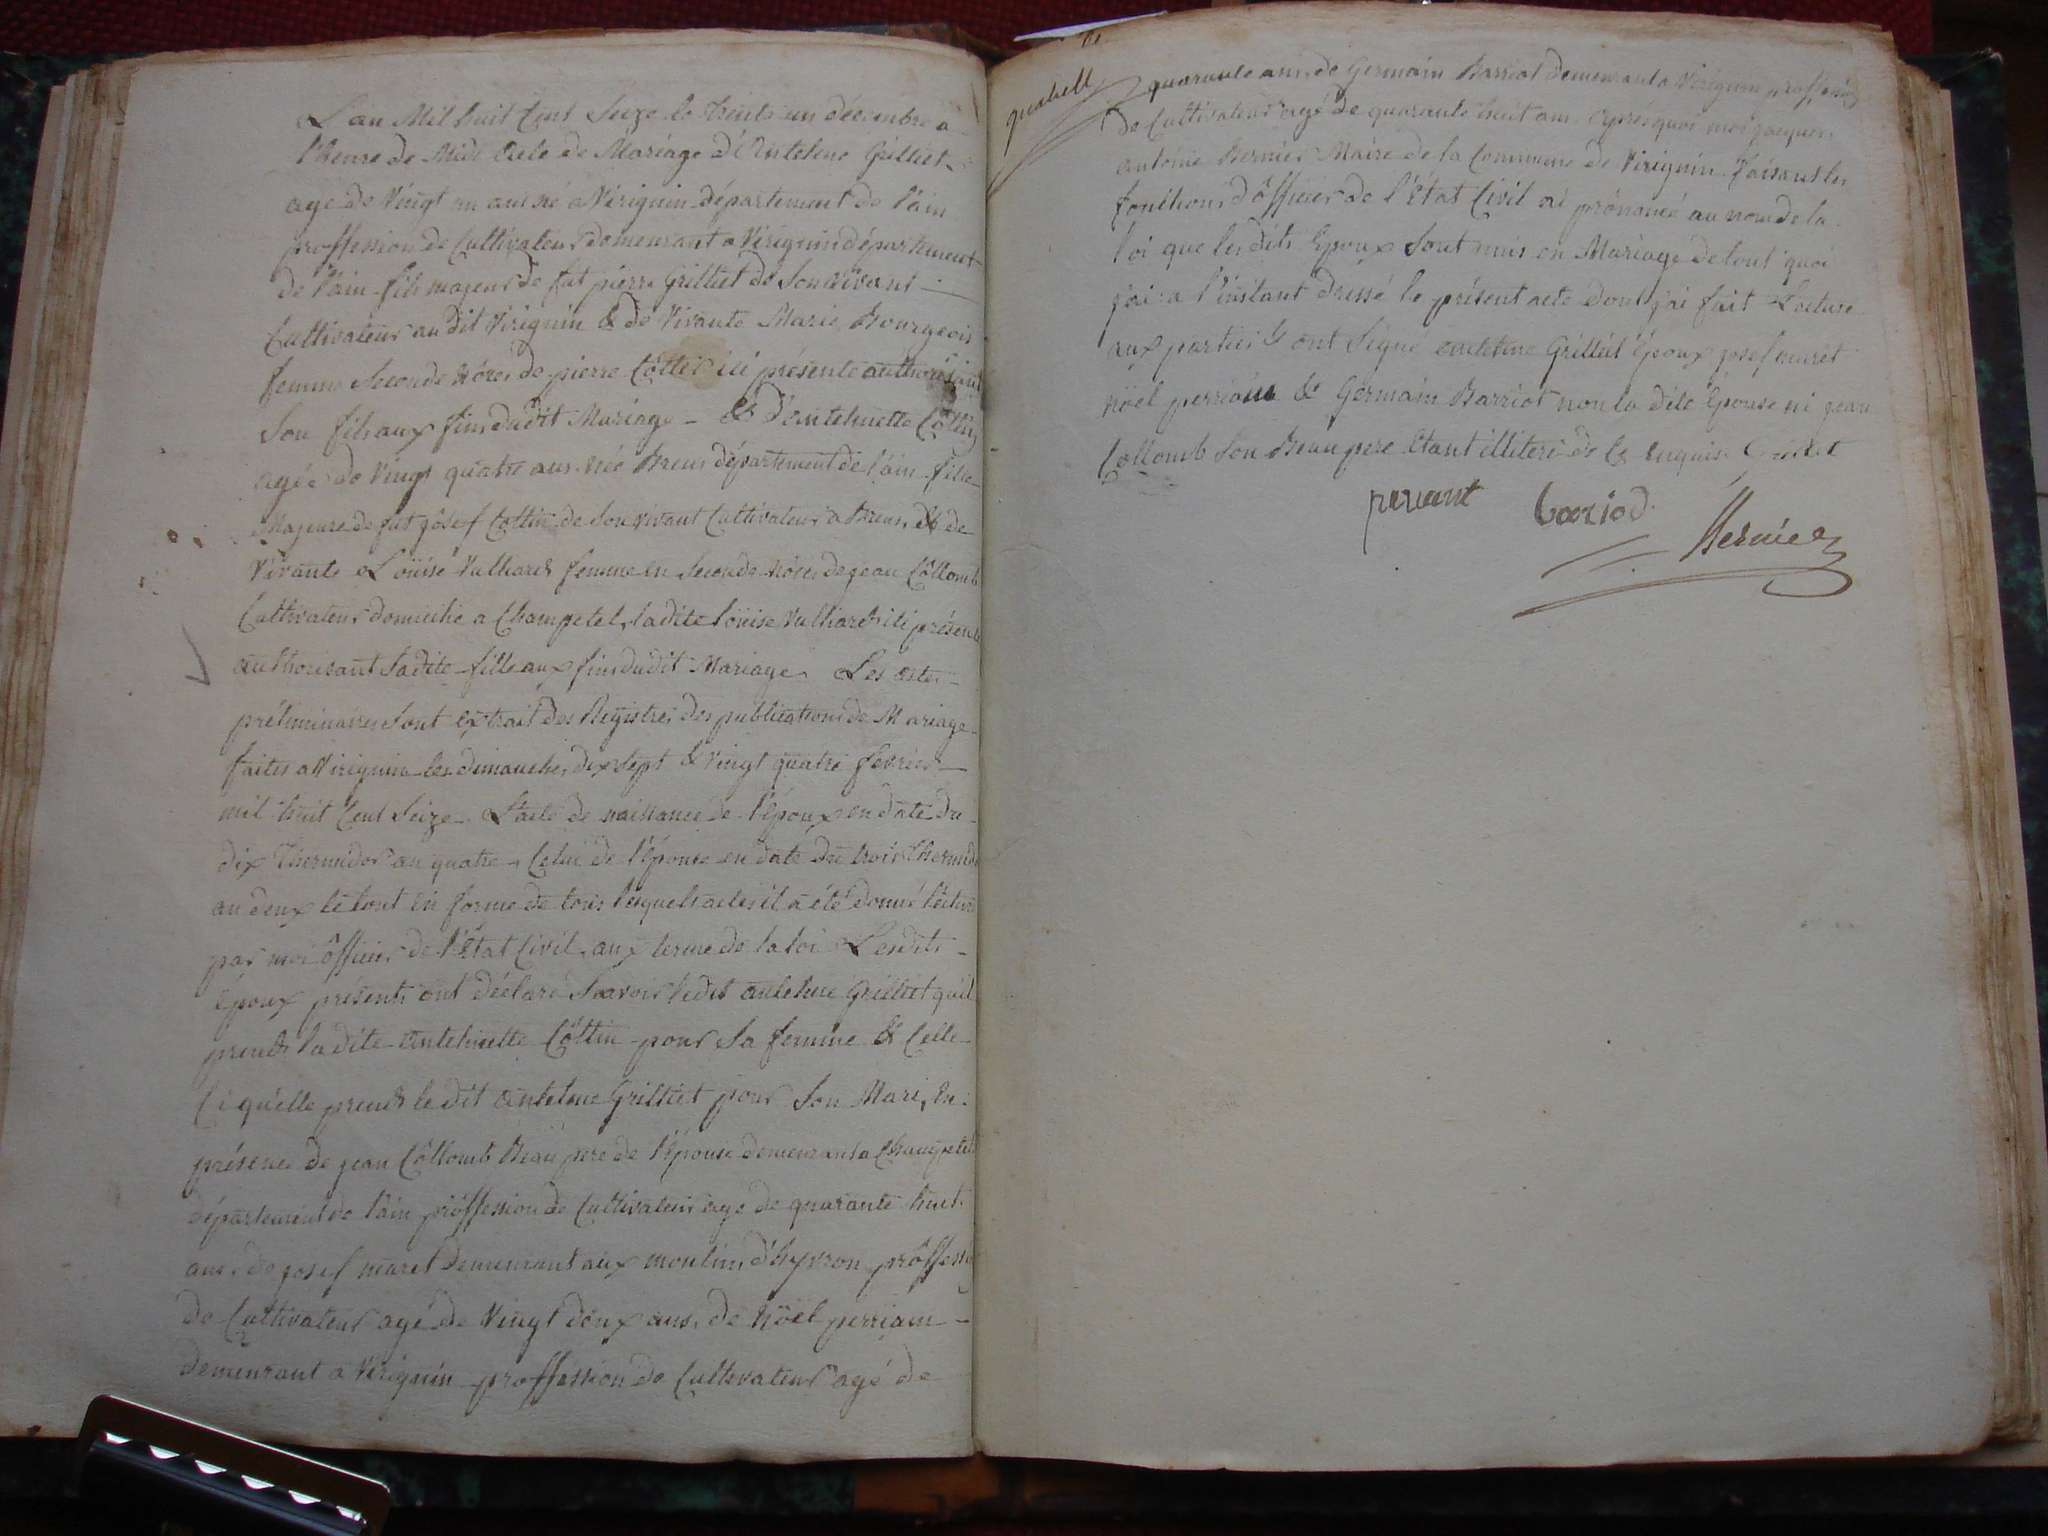 L'an Mil huit Cent Seize le trente un décembre a
l'heure de Midi Acte de Mariage d'Antelme Grilliet
agé de Vingt un ans né a Virignin département de l'ain
proffession de Cultivateur demeurant a Virignin département
de l'ain fils majeur de fut pierre Grilliet de Son vivant
Cultivateur au dit Virignin & de Vivante Marie Bourgeois
femme Seconde Nôces de pierre Côttin ici présente authorisant
Son fils aux fins dudit Mariage - & d'antelmette Côttin
agée de Vingt quatre ans née Brens département de l'ain fille
Majeure de fut josef Côttin de Son vivant Cultivateur a Brens, & de
Vivante Loüise Vulliard femme en Seconde Nôces de jean Côllomb
Cultivateur domicilié a Champetel, ladite loüise Vulliard ici présente
authorisant Sadite fille aux fins dudit Mariage. Les actes
préliminaires Sont extrait des Registres des publications de Mariage
faites a Virignin les dimanches dix Sept & Vingt quatre février
mil huit Cent Seize. L'acte de naissance de l'époux en date du
dix thermidor an quatre, Celui de l'épouse en date du trois thermidor
an deux le tout en forme de tous lesquels actes il a été donné lecture
par moi ôfficier de l'État Civil, aux terme de la loi Lesdits
époux présents ont déclaré Savoir ledit antelme Grilliet qu'il
prends ladite antelmette Côttin pour Sa femme & Celle
Ci qu'elle prends le dit antelme Grilliet pour Son Mari, En
présence de jean Côllomb Beau pere de l'épouse demeurant a Champetel
département de l'ain prôffession de Cultivateur agé de quarante huit
ans, de josef maret demeurant aux moulins d'hyvron prôffession
de Cultivateur agé de Vingt deux ans, de Nöel
demeurant a Virignin proffession de Cultivateur agé de
quarante ans, de Germain Barriot demeurant a Virignin proffession
de Cultivateur agé de quarante huit ans. après quoi moi jacques
antoine Bernier Maire de la Commune de Virignin faisant les
fonctions d'ôfficier de l'État Civil ai prononcé au nom de la
loi que lesdits Epoux Sont unis en Mariage de tout quoi
j'ai a l'instant dressé le présent acte dont j'ai fait Lecture
aux parties ont Signé antelme Grilliet Époux josef maret
nöel & Germain Barriot non la dite Épouse ni jean
Côllomb Son Beau pere Étant illiteré de Ce Enquis
Bernier